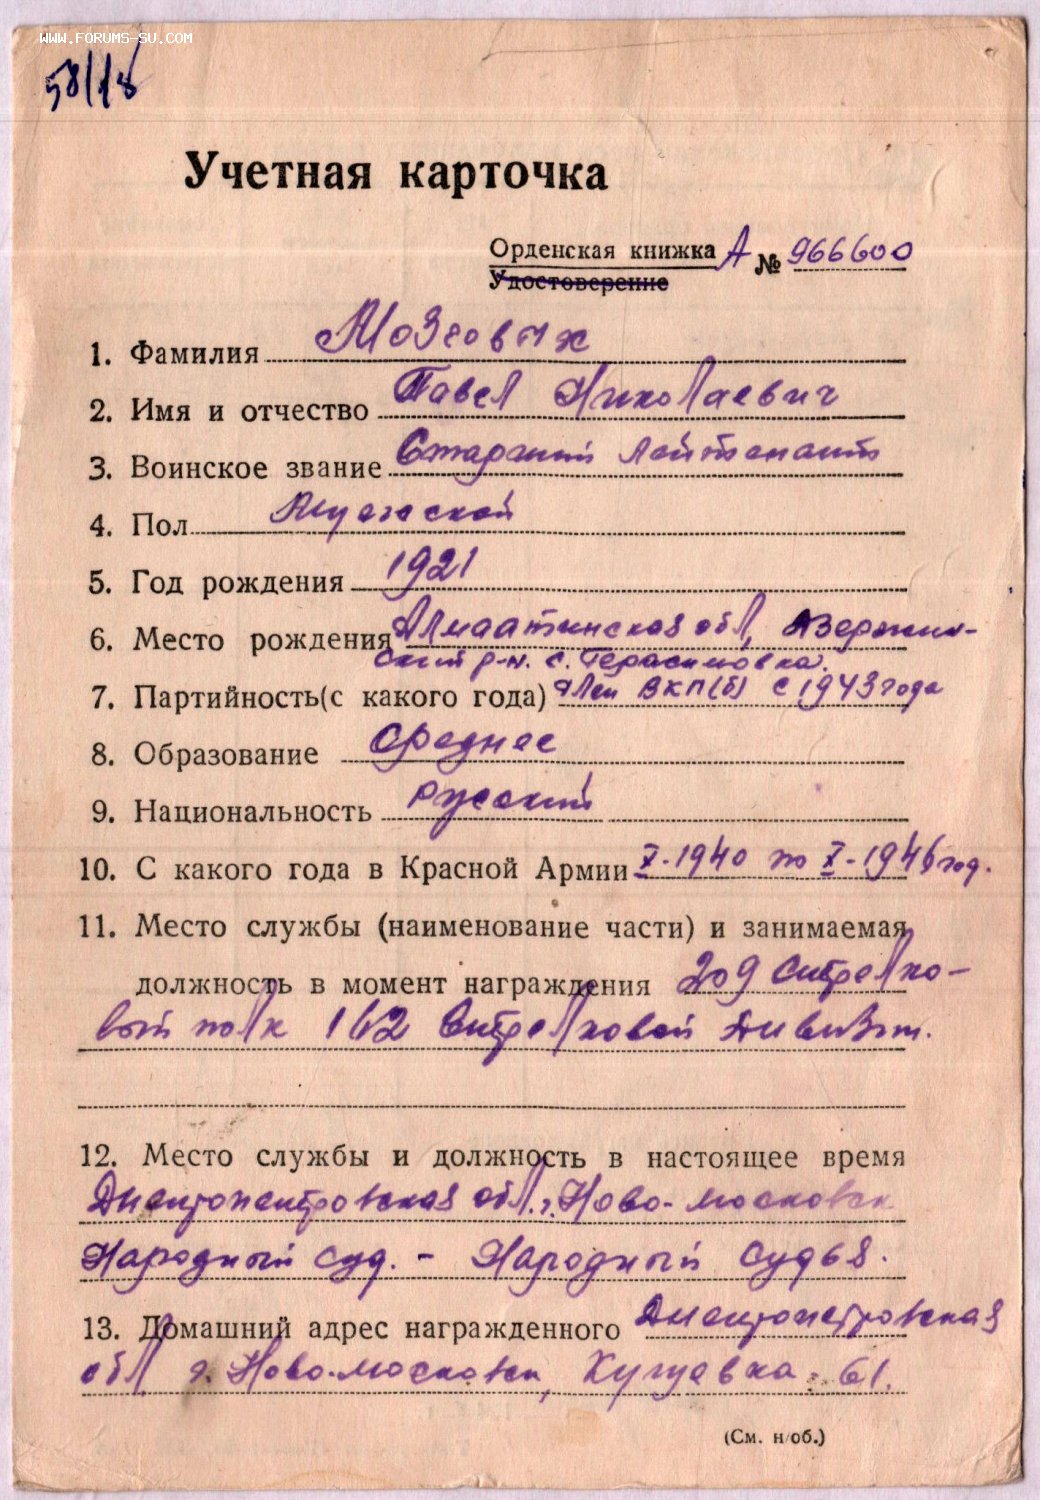 WWW.FORUMS-SU.COM
58/18
Учетная карточка
Орденская книжка А № 966600
Удостоверение
1. Фамилия Мозговых
2. Имя и отчество Павел Николаевич
3. Воинское звание Старший лейтенант
4. Пол Мужской
5. Год рождения 1921
6. Место рождения Алмаатинская обл, Дзержин-
ский р-н. с. Герасимовка.
7. Партийность(с какого года) член ВКП(б) с 1943 года
8. Образование Среднее
9. Национальность русский
10. С какого года в Красной Армии X-1940 по X-1946 год.
11. Место службы (наименование части) и занимаемая
должность в момент награждения 209 стрелко-
вый полк 162 стрелковой дивизии.
12. Место службы и должность в настоящее время
Днепропетровская обл. г. Ново-московск
Народный суд. - Народный судья.
13. Домашний адрес награжденного Днепропетровская
обл г. Ново-московск, 61.
(См. н/об.)